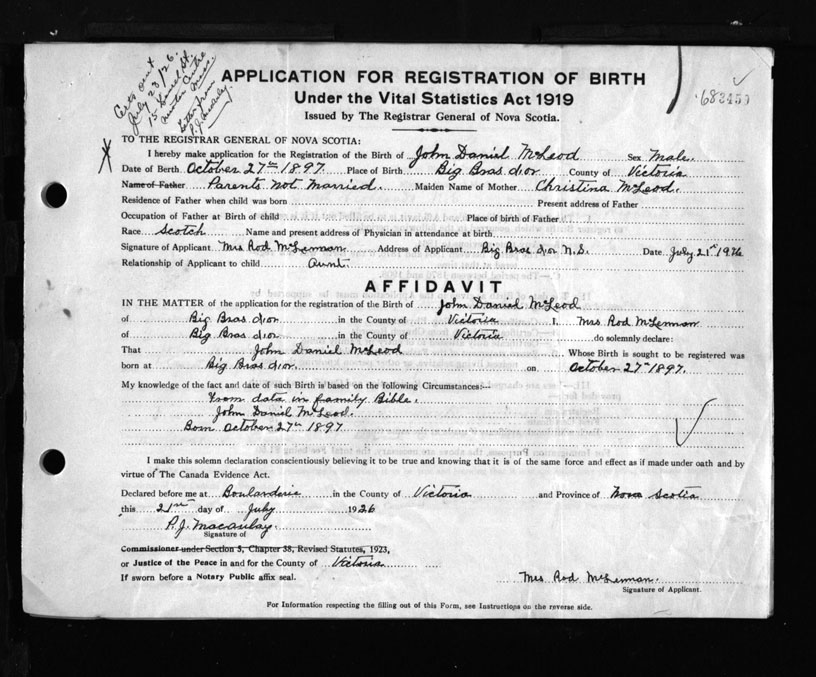 Certs out
July 23/26.
15
Newton Centre
Mass.
Letter from
P.J. Macaulay.
682450
APPLICATION FOR REGISTRATION OF BIRTH
Under the Vital Statistics Act 1919
Issued by The Registrar General of Nova Scotia.
TO THE REGISTRAR GENERAL OF NOVA SCOTIA:
X
I hereby make application for the Registration of the Birth of John Daniel McLeod Sex Male.
Date of Birth October 27th 1897. Place of Birth Big Bras d'or County of Victoria
Name of Father Parents Not Married. Maiden Name of Mother Christina McLeod.
Residence of Father when child was born Present address of Father
Occupation of Father at Birth of child Place of birth of Father
Race Scotch Name and present address of Physician in attendance at birth
Signature of Applicant Mrs Rod McLennan Address of Applicant Big Bras d'or N.S. Date July 21st 1926
Relationship of Applicant to child Aunt.
AFFIDAVIT
IN THE MATTER of the application for the registration of the Birth of John Daniel McLeod
of Big Bras d'or in the County of Victoria I, Mrs Rod McLennan
of Big Bras d'or in the County of Victoria do solemnly declare:
That John Daniel McLeod Whose Birth is sought to be registered was
born at Big Bras d'or. on October 27th 1897.
My knowledge of the fact and date of such Birth is based on the following Circumstances:—
From data in family Bible.
John Daniel McLeod.
Born October 27th 1897
I make this solemn declaration conscientiously believing it to be true and knowing that it is of the same force and effect as if made under oath and by
virtue of The Canada Evidence Act.
Declared before me at Boularderie in the County of Victoria and Province of Nova Scotia
this 21st day of July 1926
P.J. Macaulay.
Signature of
Commissioner under Section 3, Chapter 38, Revised Statutes, 1923,
or Justice of the Peace in and for the County of Victoria
If sworn before a Notary Public affix seal.
Mrs Rod McLennan.
Signature of Applicant.
For Information respecting the filling out of this Form, see Instructions on the reverse side.